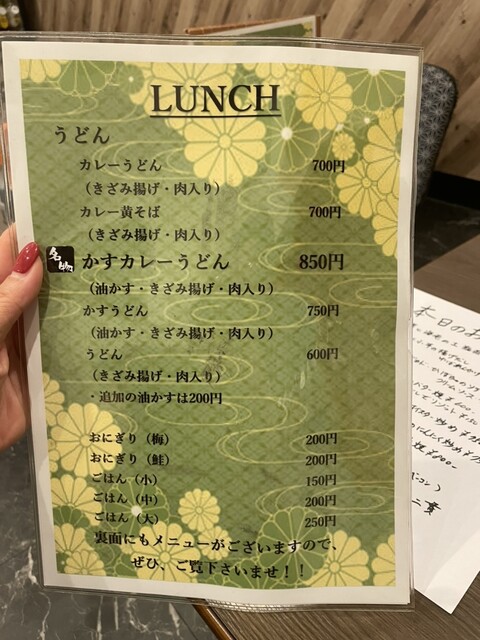 LUNCH
うどん
カレーうどん 700円
(きざみ揚げ・肉入り)
カレー黄そば 700円
(きざみ揚げ・肉入り)
名物 かすカレーうどん 850円
(油かす・きざみ揚げ・肉入り)
かすうどん 750円
(油かす・きざみ揚げ・肉入り)
うどん 600円
(きざみ揚げ・肉入り)
・追加の油かすは200円
おにぎり(梅) 200円
おにぎり(鮭) 200円
ごはん(小) 150円
ごはん(中) 200円
ごはん(大) 250円
裏面にもメニューがございますので、
ぜひ、ご覧下さいませ！！
本日のお